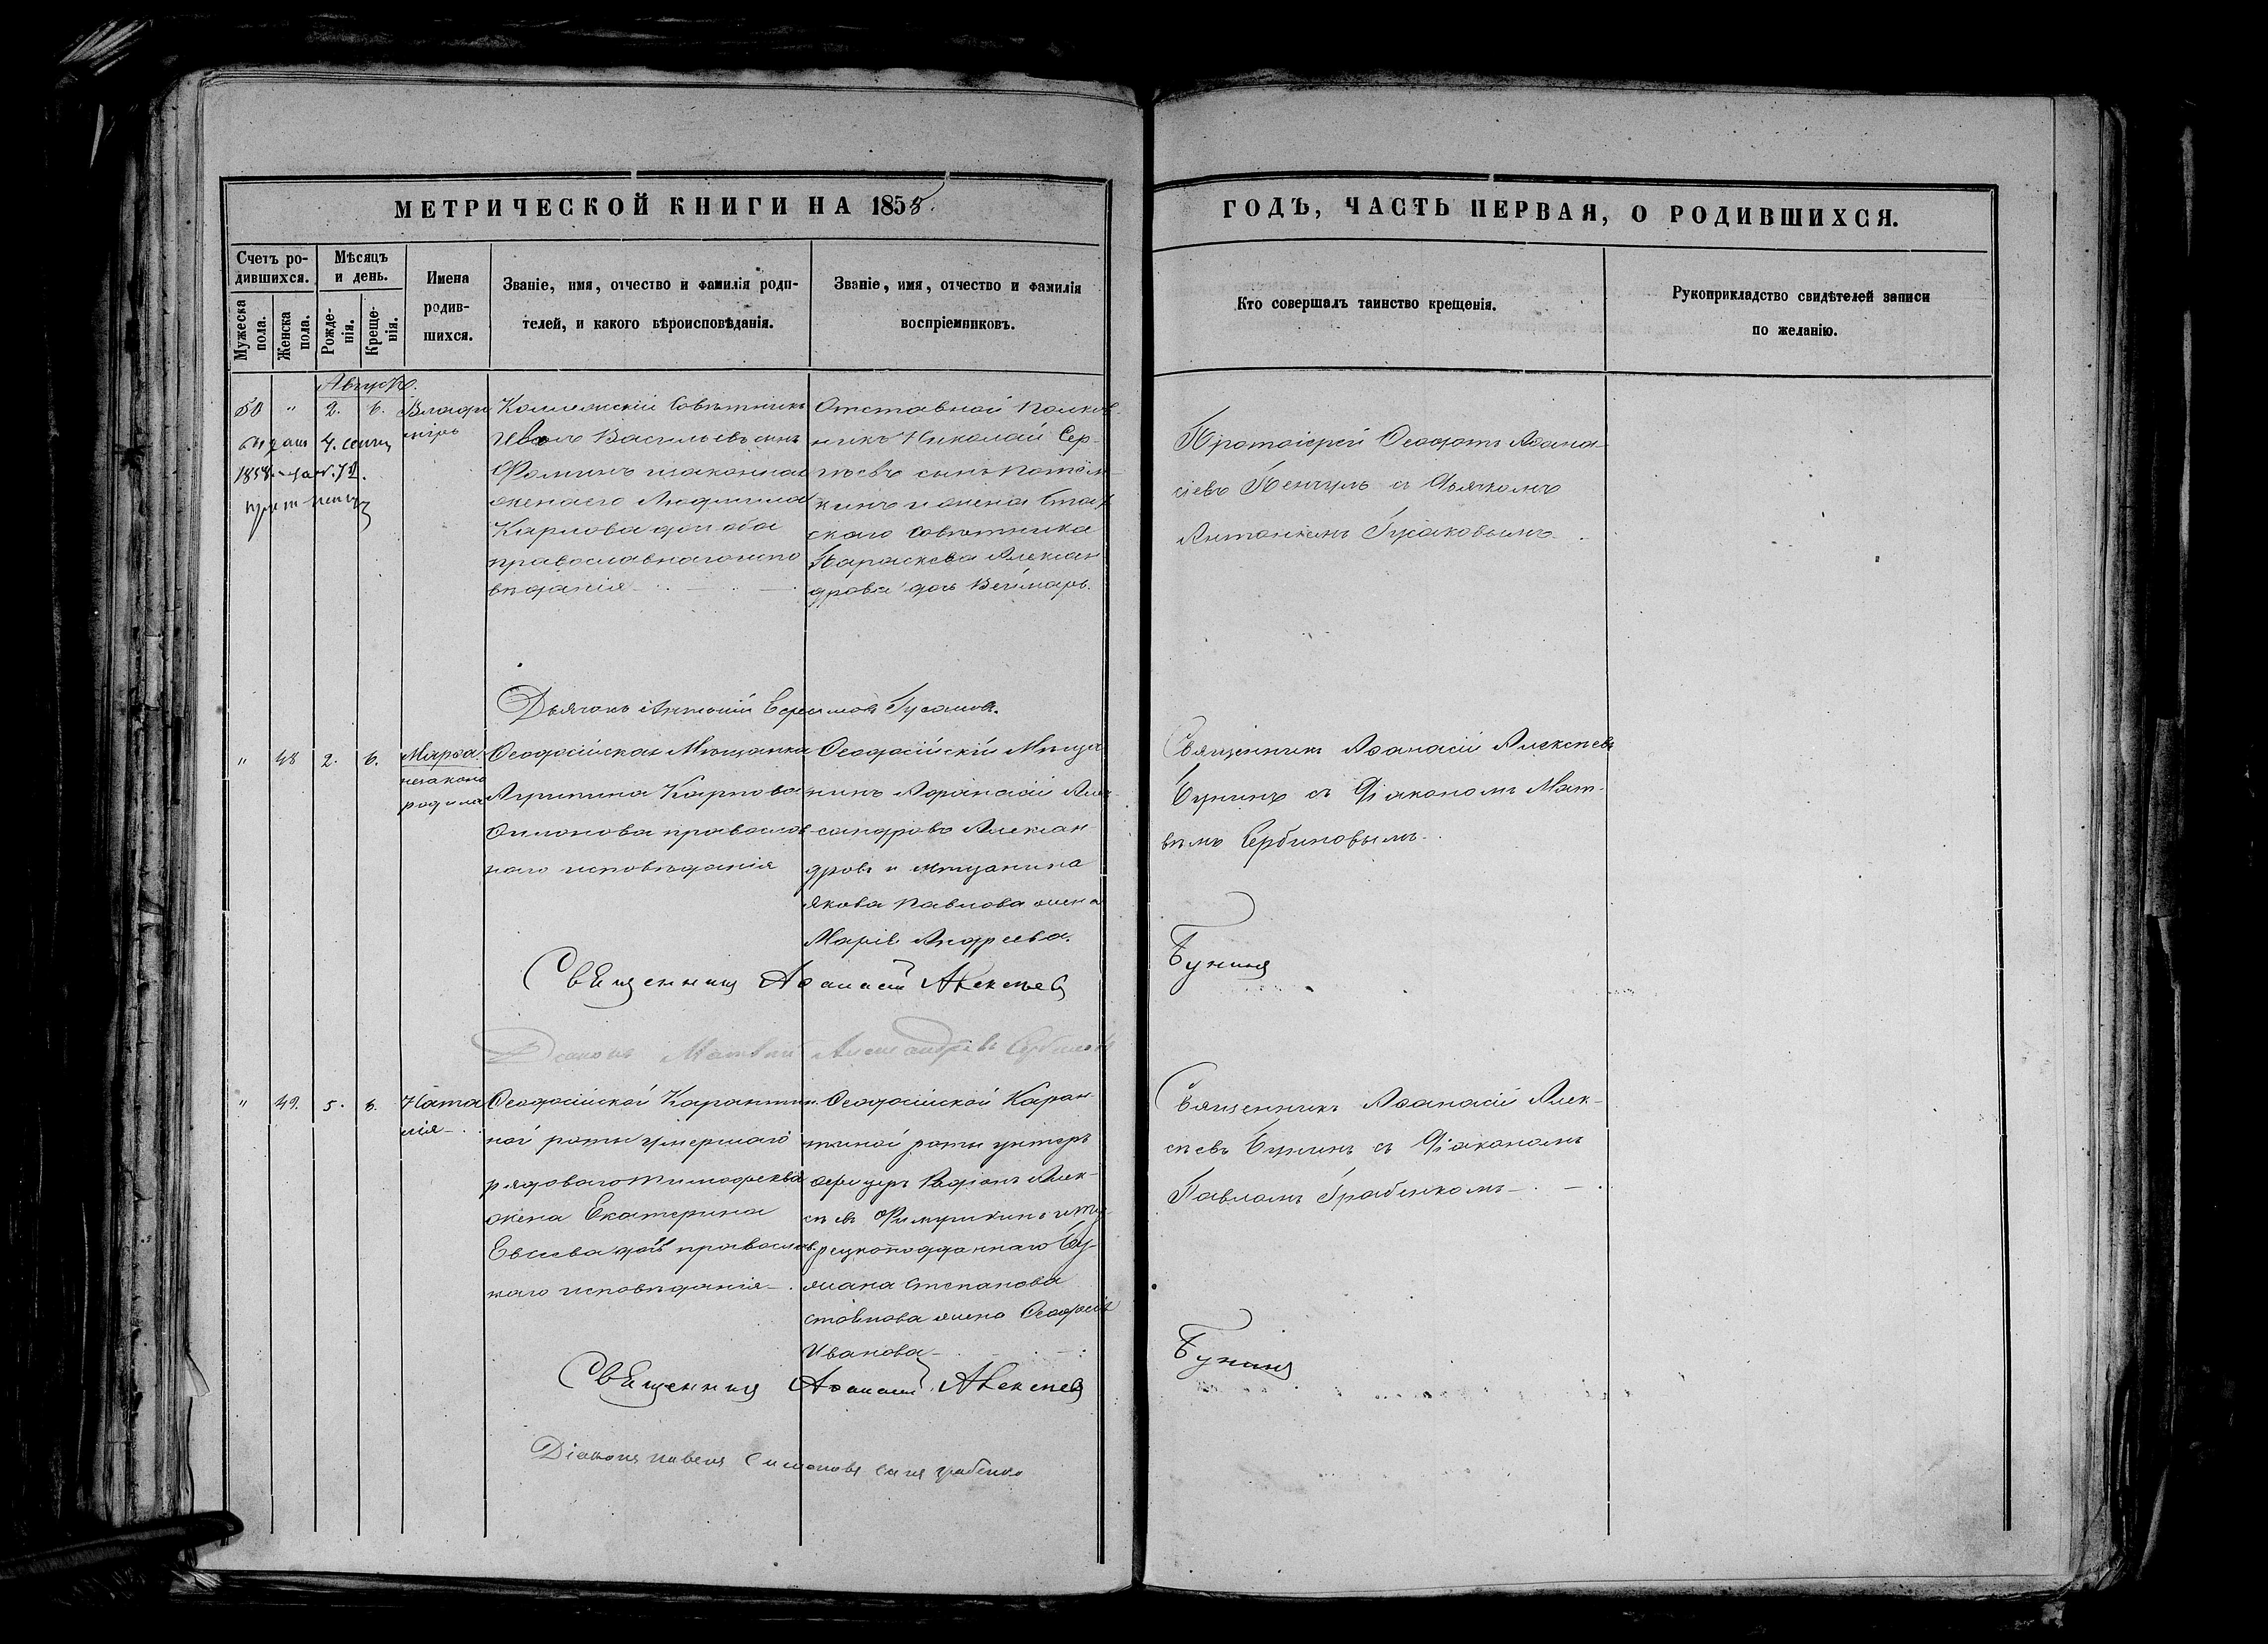 МЕТРИЧЕСКОЙ КНИГИ НА 1858.
ГОДЪ, ЧАСТЬ ПЕРВАЯ, О РОДИВШИХСЯ.
Счетъ ро-
дившихся.
Мужеска пола.
Женска пола.
Мѣсяцъ
и день.
Рожде-
нія.
Креще-
нія.
Имена
родив-
шихся.
Званіе, имя, отчество и фамилія роди-
телей, и какого вѣроисповѣданія.
Званіе, имя, отчество и фамилія
воспріемниковъ.
Кто совершалъ таинство крещенія.
Рукоприкладство свидѣтелей записи
по желанію.
Августъ.
50 " 2. 6. Влади
міръ
1858.
Коллежскій Совѣтникъ
Иванъ Васильевъ сынъ
Фоминъ и законная
жена его Людмила
Карлова дочь оба
православнаго испо
вѣданія
Отставной Полков
никъ Николай Сер-
гѣевъ сынъ Потём
кинъ и жена Стат
скаго Совѣтника
Параскева Алексан
дрова дочь Веймаръ.
Протоіерей Ѳеодотъ Аѳана
сіевъ съ Дьячкомъ
Антоніемъ Гусаковымъ.
Дьячокъ Антоній Гусаковъ.
" 48 2. 6. Марѳа
незакон
Ѳеодосійская Мѣщанка
Агрипина Карпова
православ
наго исповѣданія
Ѳеодосійскій Мѣща
нинъ Аѳанасій Алек
сандровъ Алексан
дровъ и мѣщанина
Якова Павлова жена
Марія Андреева.
Священникъ Аѳанасій Алексѣевъ
Бунинъ съ Діакономъ Мат-
вѣемъ Сербиновымъ.
Священникъ Аѳанасій Алексѣевъ
Бунинъ
Діаконъ Матвій Александровъ Сербиновъ
" 49. 5. 6. Ната
лія
Ѳеодосійской Карантин
ной роты умершаго
рядоваго Тимофеева
жена Екатерина
Евсеева дочь православ
наго исповѣданія
Ѳеодосійской Каран
тинной роты унтеръ
офицеръ Родіонъ Алек-
сѣевъ и ту
рецкоподданнаго
Степанова
жена Ѳеодосія
Иванова
Священникъ Аѳанасій Алек-
сѣевъ Бунинъ съ Діакономъ
Павломъ Грабенкомъ
Священникъ Аѳанасій Алексѣевъ
Бунинъ
Діаконъ Павелъ Симоновъ сынъ Грабенко